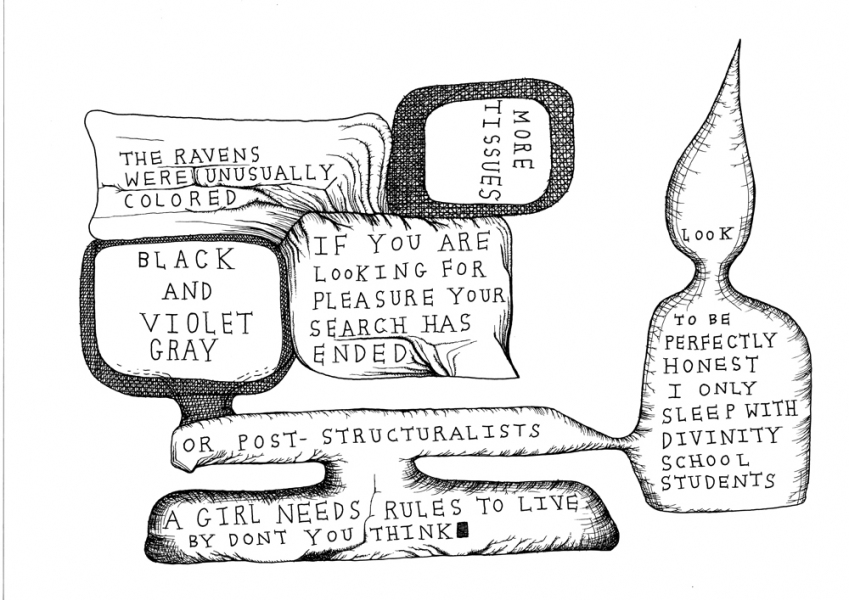 THE RAVENS
WERE UNUSUALLY
COLORED
MORE
TISSUES
BLACK
AND
VIOLET
GRAY
IF YOU ARE
LOOKING FOR
PLEASURE YOUR
SEARCH HAS
ENDED
LOOK
TO BE
PERFECTLY
HONEST
I ONLY
SLEEP WITH
DIVINITY
SCHOOL
STUDENTS
OR POST-STRUCTURALISTS
A GIRL NEEDS RULES TO LIVE
BY DONT YOU THINK